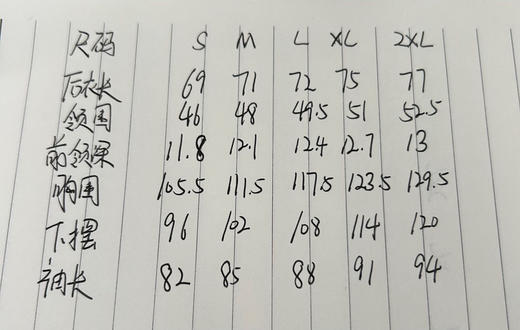 尺码 S M L XL 2XL
后衣长 69 71 72 75 77
领围 46 48 49.5 51 52.5
前领深 11.8 12.1 124 12.7 13
胸围 105.5 111.5 117.5 123.5 129.5
下摆 96 102 108 114 120
袖长 82 85 88 91 94